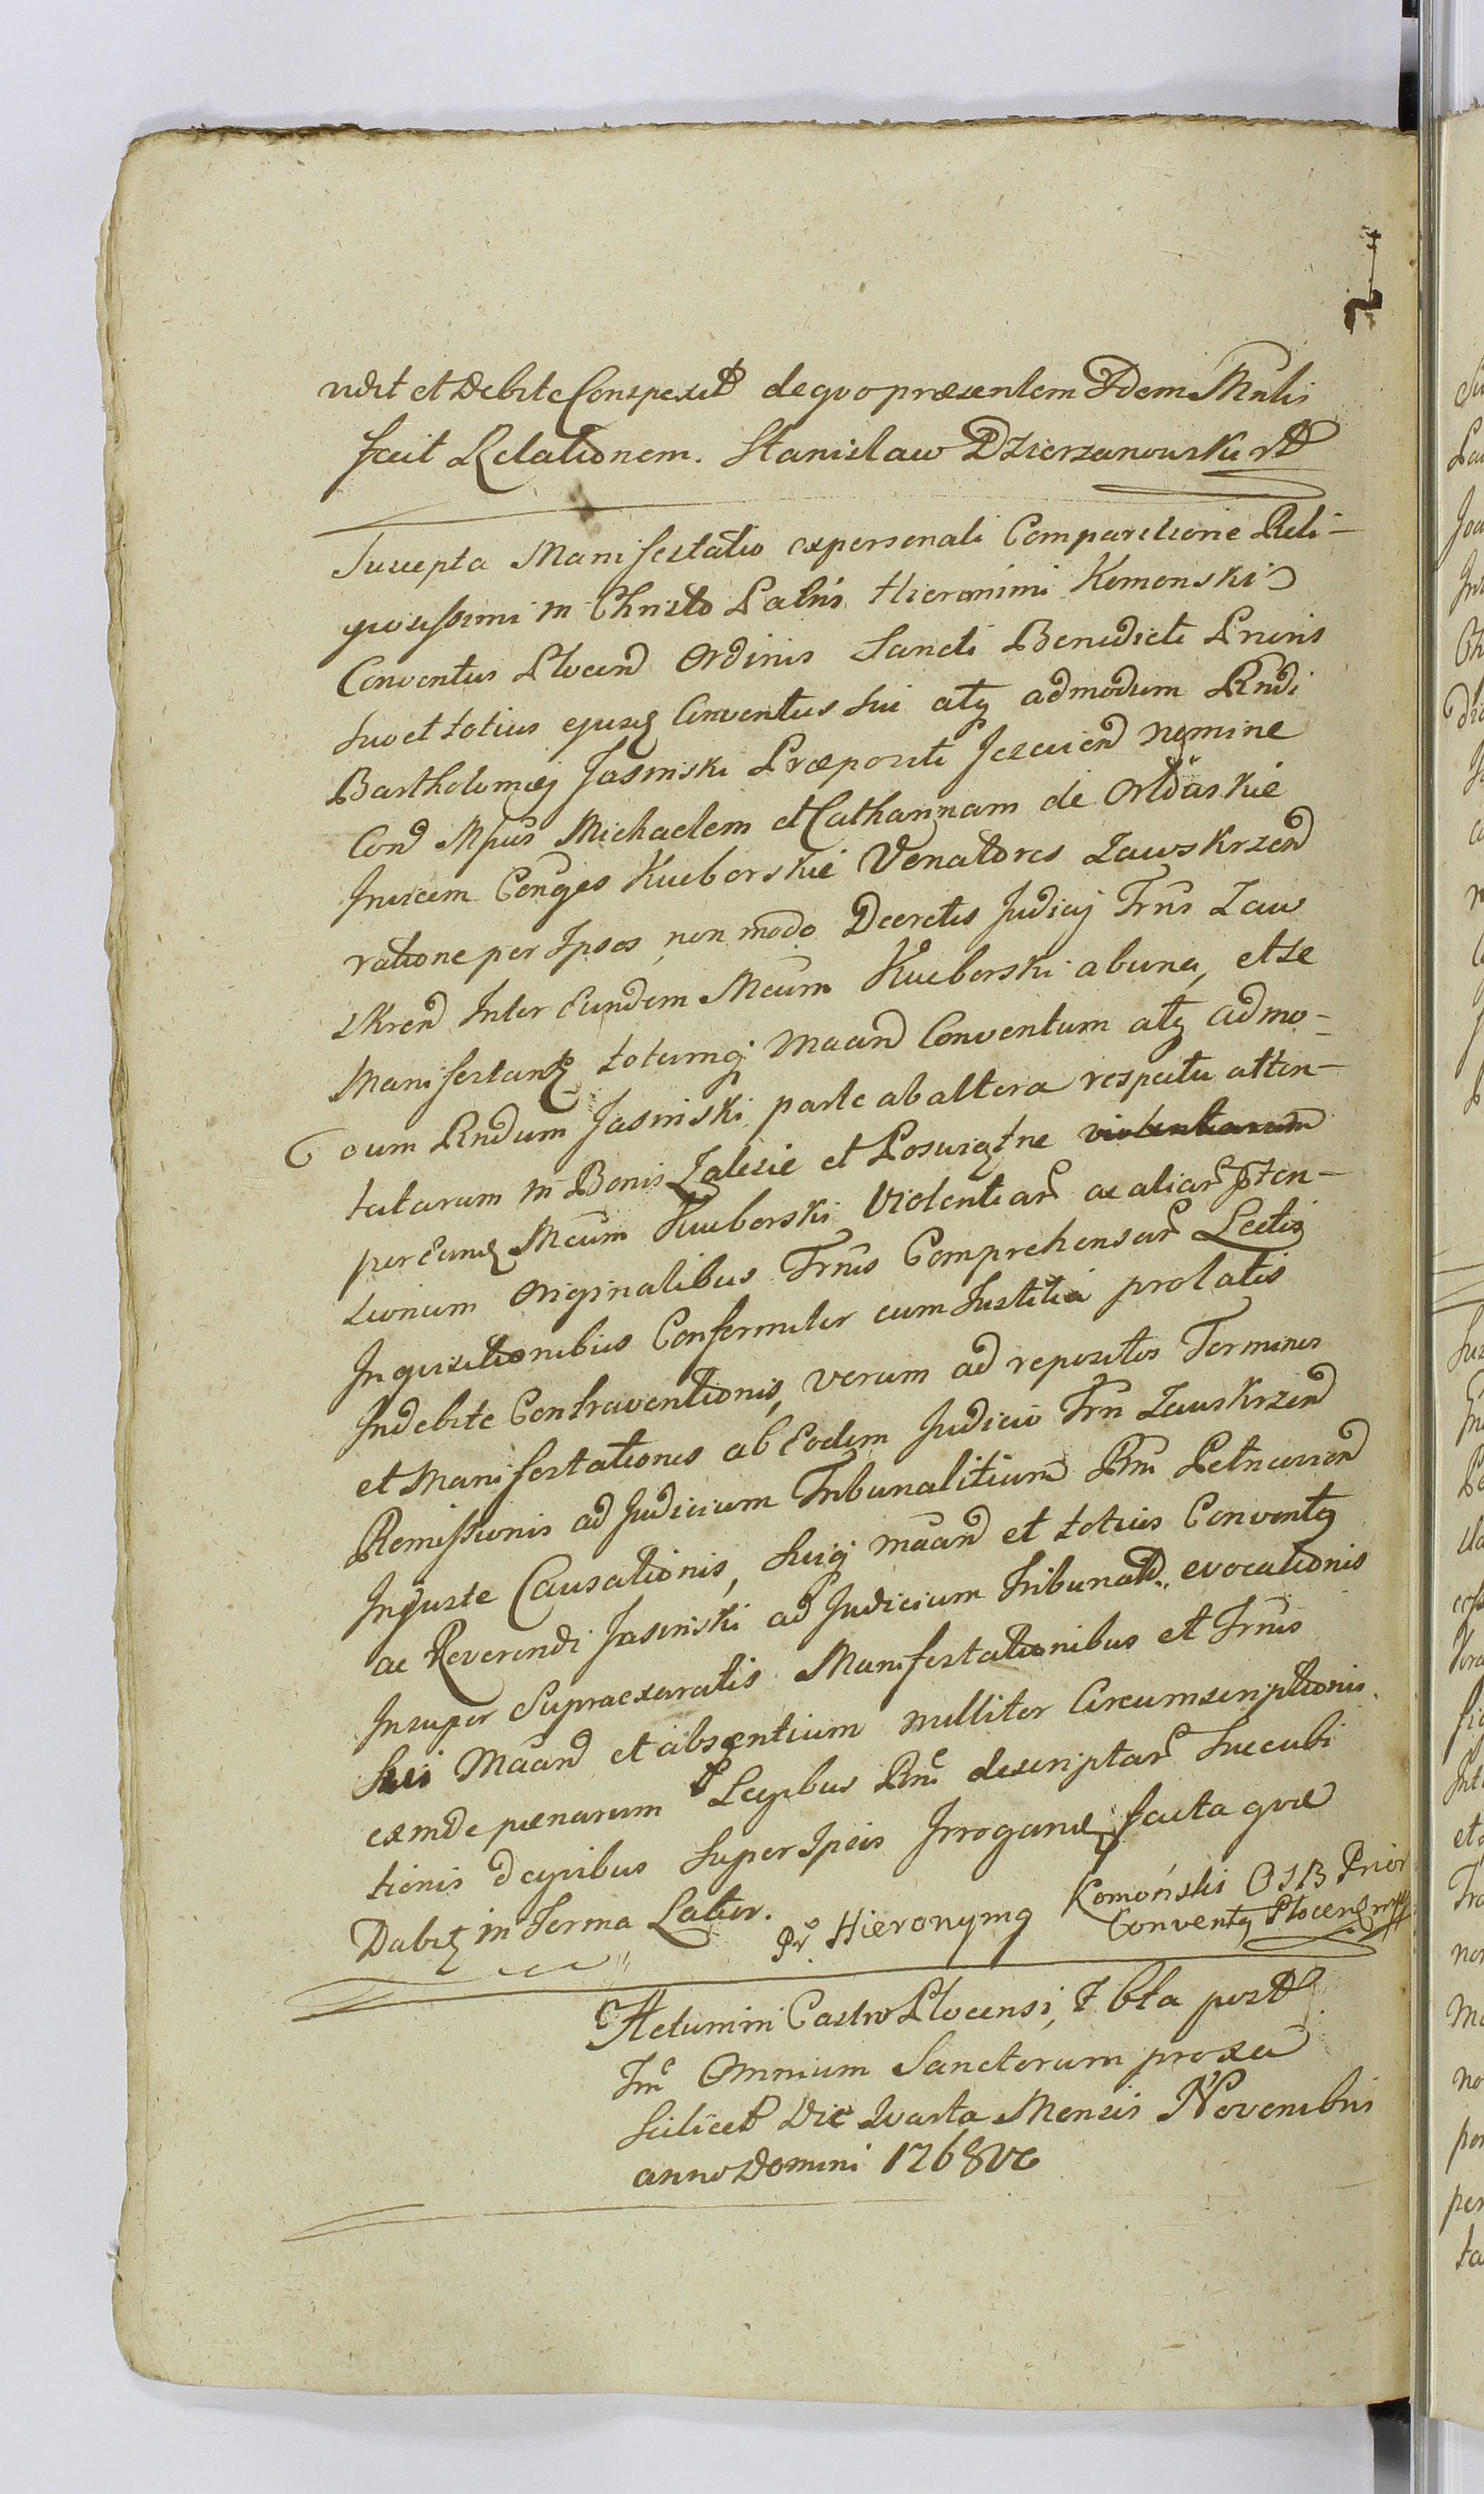 vdit et Debite Conspexit de quo præsentem Idem Mnlis
fecit Relationem. Stanislaw Dzierzanowski
Suscepta Manifestatio ex personali Comparitione Reli-
giosissimi in Christo Patris Hieronimi Komonski
Conventus Plocen Ordinis Sancti Benedicti Prioris
suo et totius ejusq Conventus sui atq admodum Rndi
Bartholomæj Jasinski Præpositi nomine
Cond Mfcus Michaelem et Catharinam de Ordaskie
Invicem Conges Kucborskie Venatores Zawskrzen
ratione per Ipsos, non modo Decretis Judicij Trris Zaw
skren Inter Eundem Mcum Kucborski ab una, et se
Manifestantz totumq Maan Conventum atq admo-
dum Rndum Jasinski parte ab altera respectu atten-
tatarum in Bonis Zalesie et Poswiętne violentiarum
per Eund Mcum Kucborski Violentiar ac aliar Pten-
sionum Originalibus Trris Comprehensar Lectis
Inquisitionibus Conformiter cum Justitia prolatis
Indebite Contraventionis, verum ad repositos Terminos
et Manifestationes ab Eodem Judicio Trri Zawskrzen
Remissionis ad Judicium Tribunalitium Rni Petricovien
Injuste Causationis, suiq maan et totius Conventq
ac Reverendi Jasinski ad Judicium Tribunal evocationis
Insuper Supraexaratis Manifestationibus et Trris
Sui Maan et absentium nulliter Circumscriptionis.
exinde pœnarum Legibus Rni descriptar Succubi
tionis de quibus super Ipsis Irrogand facta que
Dabit in Forma Latior.
Pr. Hieronymq Komoński OSB Prior
Conventq Plocens mpp
Actum in Castro Plocensi, F bta post
Fm Omnium Sanctorum proxa
scilicet Die Quarta Mensis Novembris
anno Domini 1768vo